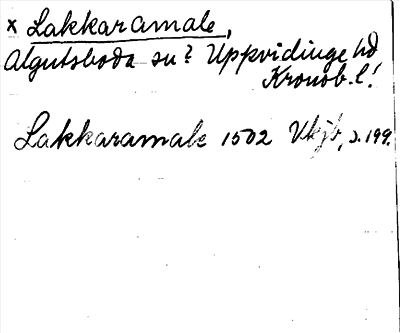 x Lakkaramale,
Algutsboda sn? Uppvidinge hd
Kronob. l!
Lakkaramale 1502 Vkjb, s. 199.